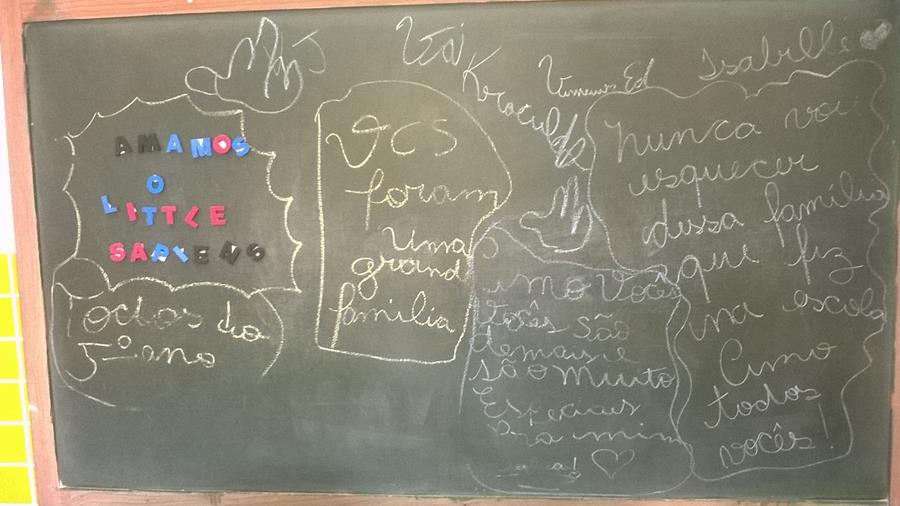 AMAMOS
O
LITTLE
SAPIENS
Todos do
5º ano
VCS
foram
Uma
grand
família
Isabelle
Amo vocês
Vocês são
demais e
são muito
Especiais
Pra mim
nunca vou
esquecer
dessa família
que fiz
na escola
Amo
todos
vocês!